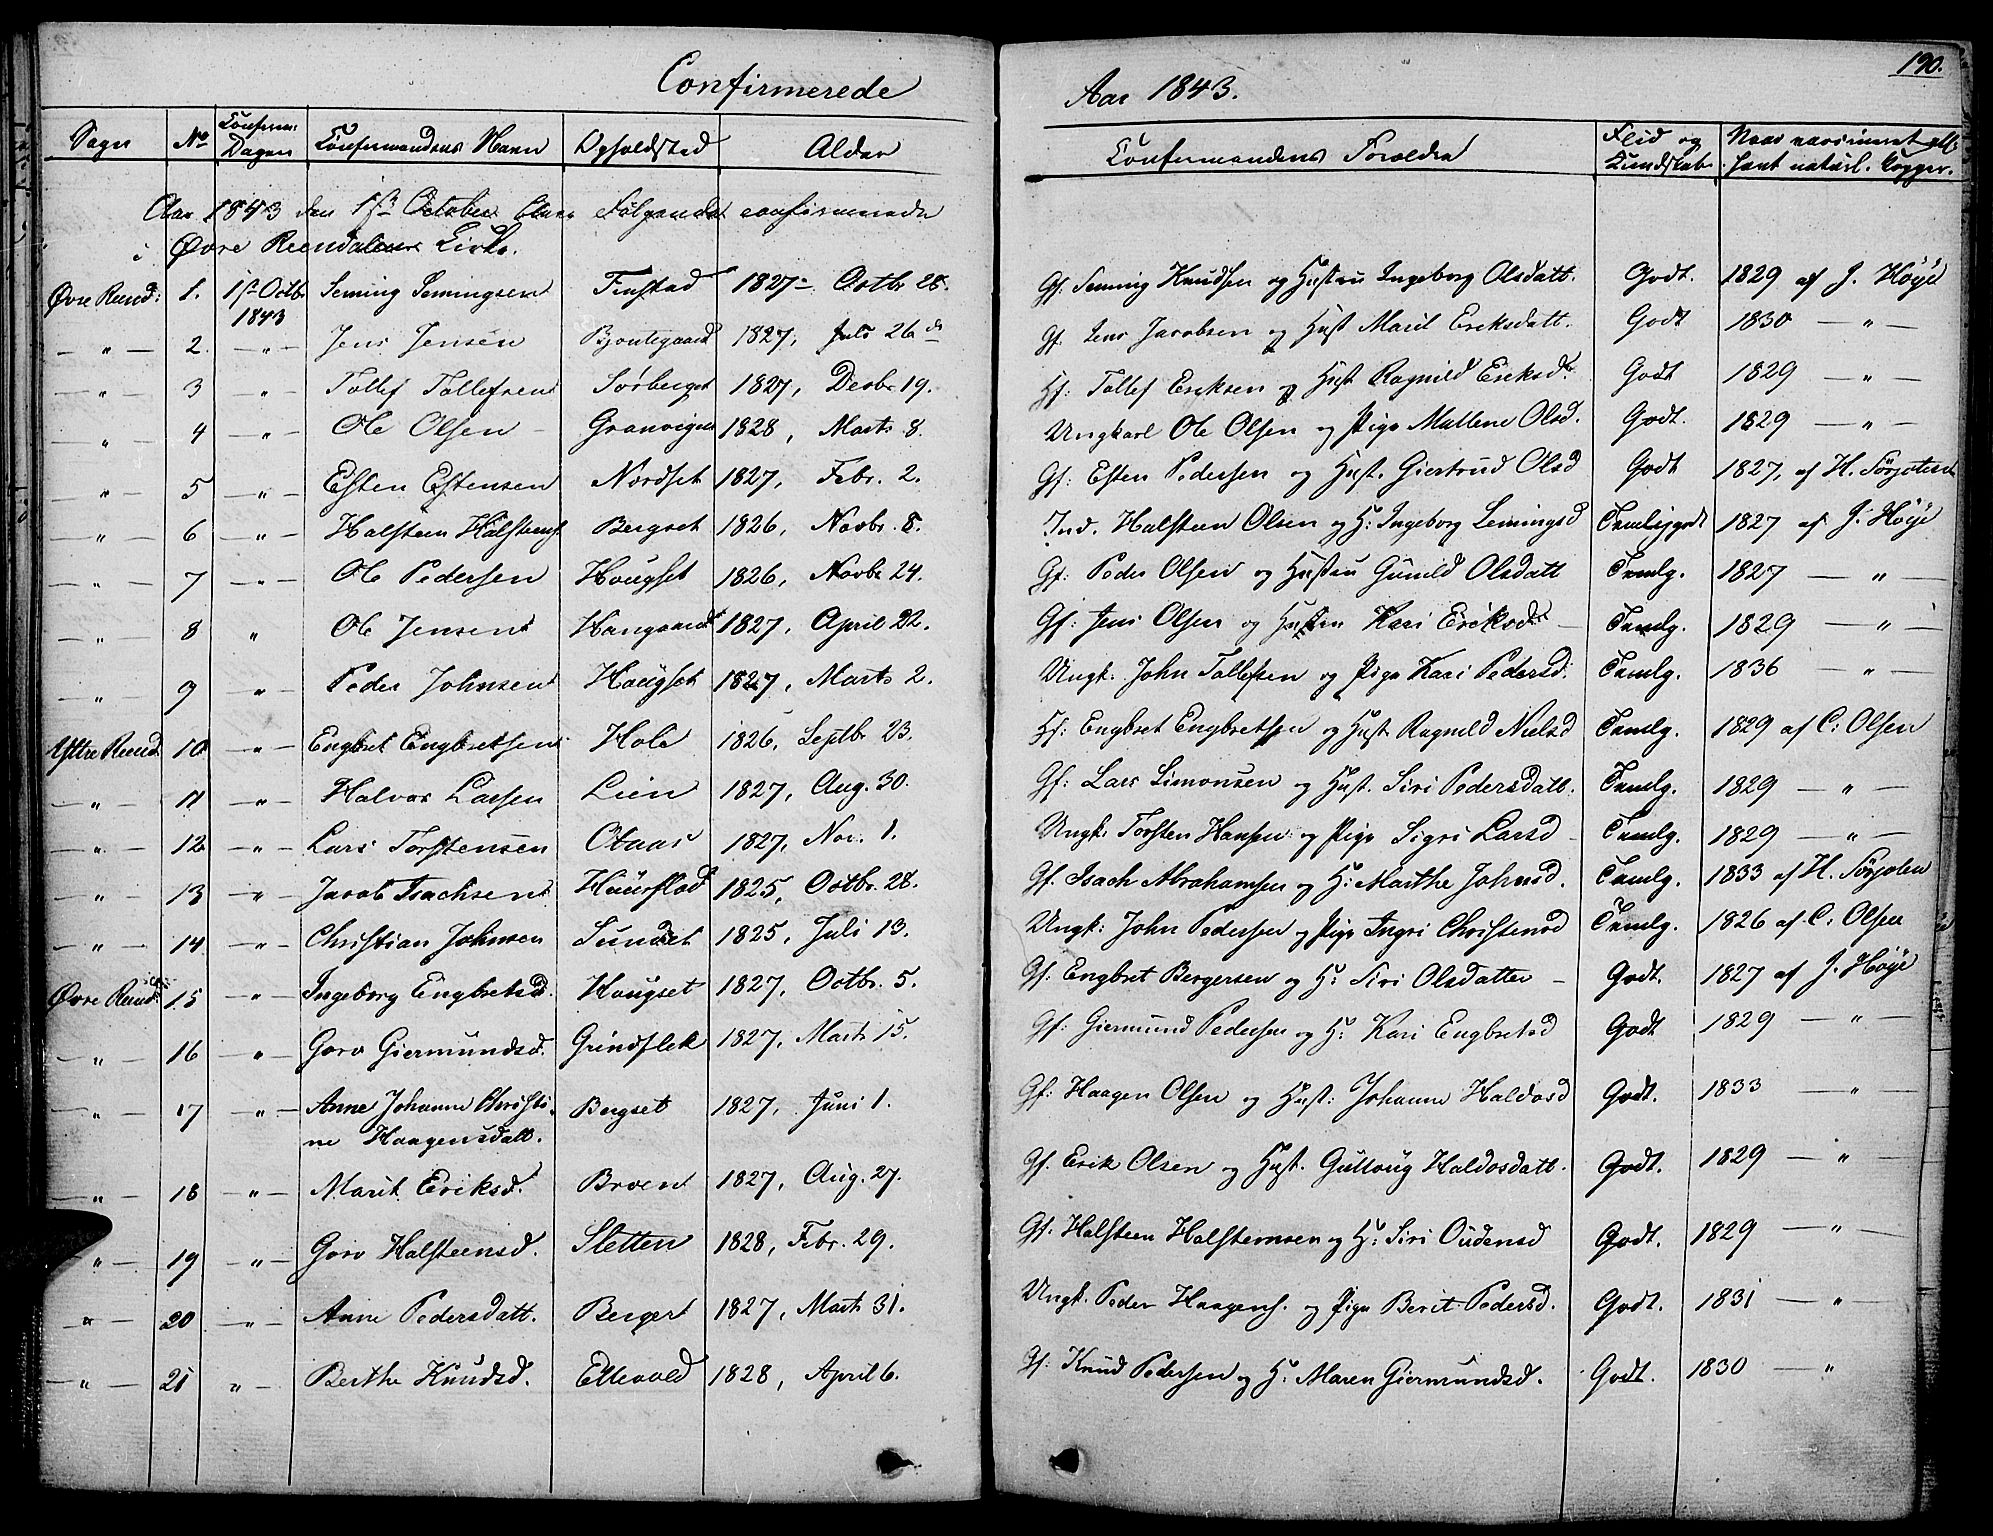 190.
Confirmerede Aar 1843.
Sogn No Conferm: Dagen Confermandens Navn Opholdsted Alder Confermandens Foreldre Flid og Kundskab Naar vaccineret
Aar 1843 den 1ste October bleve Følgende confirmerede
i Øvre Reendalens Kirke.
Øvre Rend: 1. 1ste Octbr 1843 Seming Semingsen Finstad 1827 Octbr 28. Gf: Seming Knudsen og Hustru Ingeborg Olsdatt. Godt. 1829 af J. Høye
— " — 2. — " — Jens Jensen Bjontegaard 1827, Juli 26 Gf. Jens Jacobsen og Hust Marit Eriksdatt. Godt 1830 — " —
— " — 3 — " — Tollef Tollefsen Sørberget 1827, Decbr 19. Hf: Tollef Eriksen og Hust Ragnild Eriksd. Godt 1829 — " —
— " — 4 — " — Ole Olsen Granvigen 1828, Marts 8. Ungkarl Ole Olsen og Pige Mallene Olsd. Godt. 1829 — " —
— " — 5 — " — Esten Estensen Nordset 1827, Febr. 2. Gf: Esten Pedersen og Hust. Giertrud Olsd Godt 1827, af H. Sørjoten
— " — 6 — " — Halsteen Halsteens Bergset 1826, Novbr. 8. Ind. Halsteen Olsen og H: Ingeborg Semingsd Temligodt 1827 af J. Høye
— " — 7 — " — Ole Pedersen Hougset 1826, Novbr 24. Gf: Peder Olsen og Hustru Gunild Olsdatt Temlg. 1827 — " —
— " 8 " Ole Jensen Hangaard 1827, April 22. Gf: Jens Olsen og Hustru Kari Eriksd — Temlg. 1829 — " —
" 9 " Peder Johnsen Hougset 1827, Marts 2. Ungk. John Tollefsen og Pige Kari Pedersd: Temlg. 1836 " —
Yttre Rend. 10 — " — Engbret Engbretsen Hole 1826, Septbr 23. Hf: Engbret Engbretsen og Hust Ragnild Nielsd Temlg. 1829 af C: Olsen
— " — 11 — " — Halvor Larsen Lien 1827, Aug. 30. Gf: Lars Simonsen og Hust. Siri Pedersdatt. Temlg. 1829 — " —
— " — 12 — " — Lars Torstensen Otaas 1827, Nov. 1. Ungk: Torsten Hansen og Pige Sigri Larsd — Temlg. 1829 — " —
— " — 13 — " — Jacob Isachsen 1825, Octbr. 28. Gf. Isach Abrahamsen og H: Marthe Johnsd. Temlg. 1833 af H. Sørjoten
— " — 14 — " — Christian Johnsen Sundet 1825, Juli 13. Ungk: John Pedersen og Pige Ingri Christensd Temlg. 1826 af C. Olsen
Øvre Rend. 15 — " — Ingeborg Engbretsd. Hougset 1827, Octbr. 5. Gf. Engbret Bergersen og H: Siri Olsdatter — Godt. 1827 af J. Høye
— " — 16 " Goro Giermundsd. Grindflek 1827, Marts 15. Gf: Giermund Pedersen og H: Kari Engbretsd Godt 1829 — " —
" 17 — " — Anne Johanne Christi-
ne Haagensdatt. Bergset 1827, Juni 1. Gf: Haagen Olsen og Hust: Johanne Haldosd Godt. 1833 — "
— " — 18 — " — Marit Eriksd. Broen 1827, Aug. 27. Gf. Erik Olsen og Hust. Gulloug Haldosdatt. Godt. 1829 — " —
" — 19 — " — Goro Halsteensd. Sletten 1828, Febr. 29. Gf: Halsteen Halsteensen og H: Siri Oudensd Godt. 1829 — " —
— " — 20 — " — Anne Pedersdatt. Berget 1827, Marts 31. Ungk. Peder Haagens. og Pige Berit Pedersd. Godt. 1831 — " —
— " — 21 " — Berthe Knudsd. Ellevold 1828, April 6. Gf: Knud Pedersen og H: Maren Giermundsd. Godt. 1830 — "